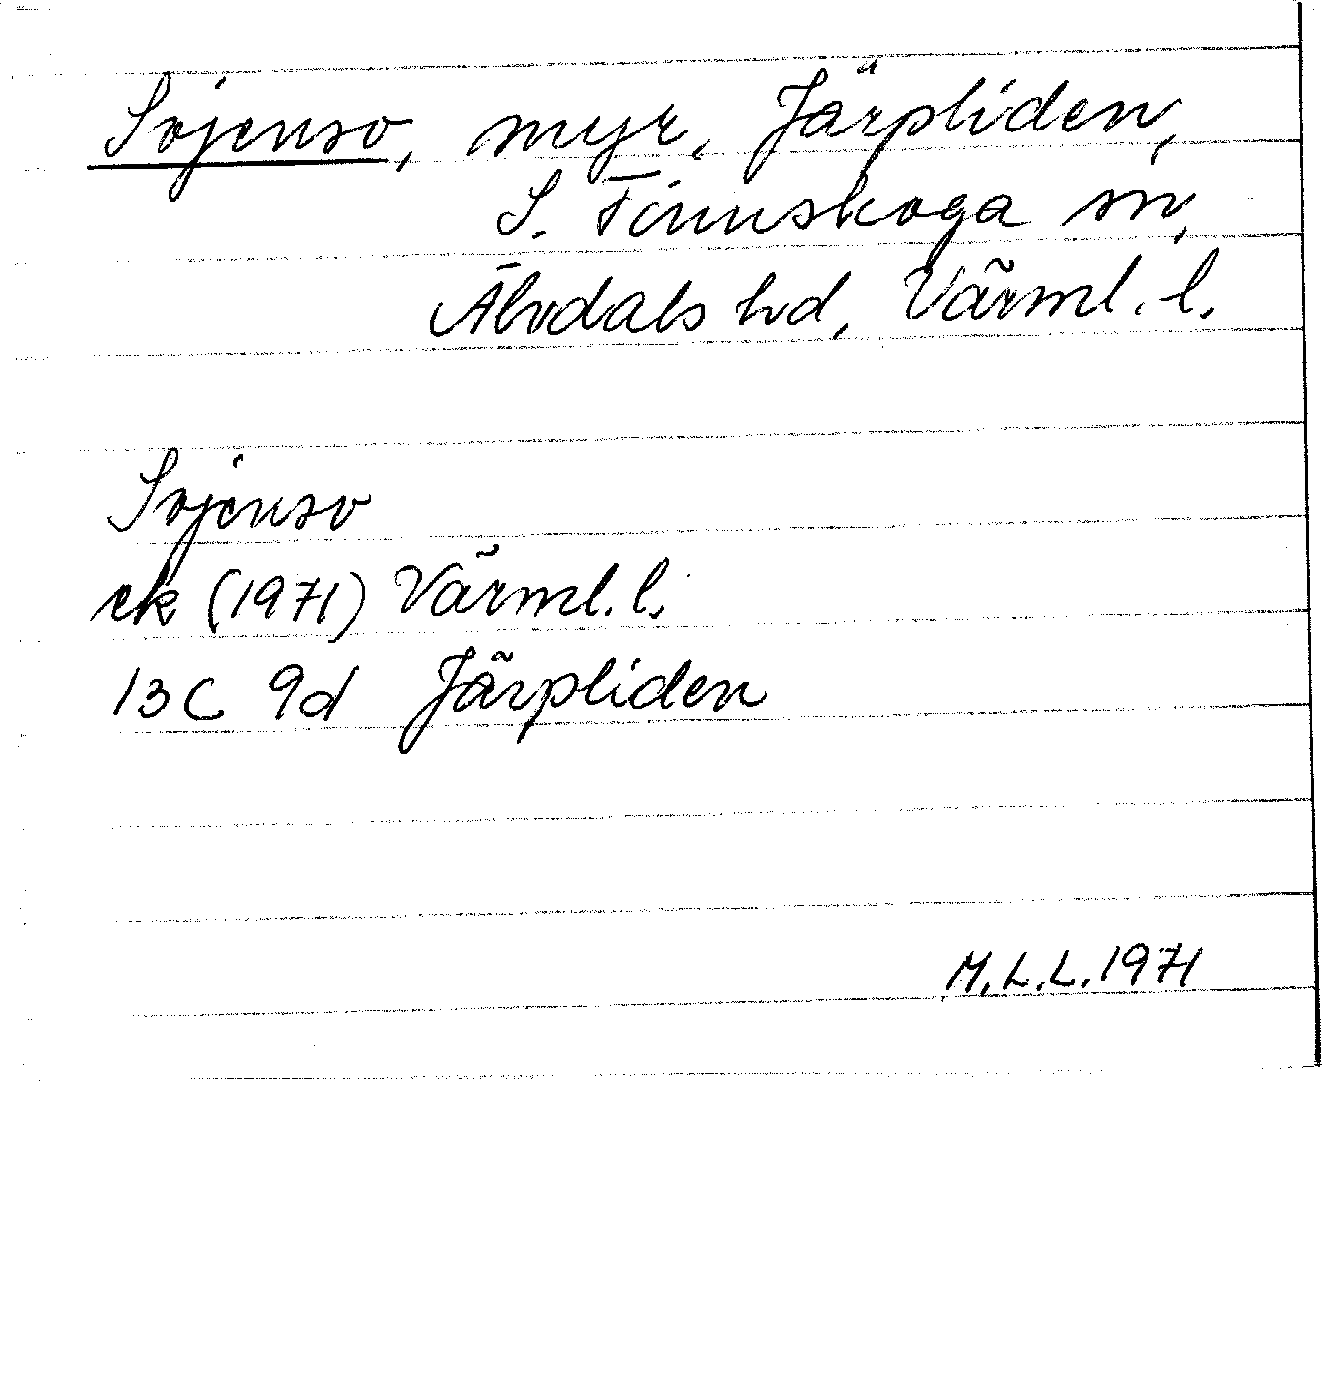 Sojenso, myr, Järpliden,
S. Finnskoga sn,
Älvdals hd, Värml. l.
Sojenso
ek (1971) Värml. l.
13C 9d Järpliden
M.L.L. 1971